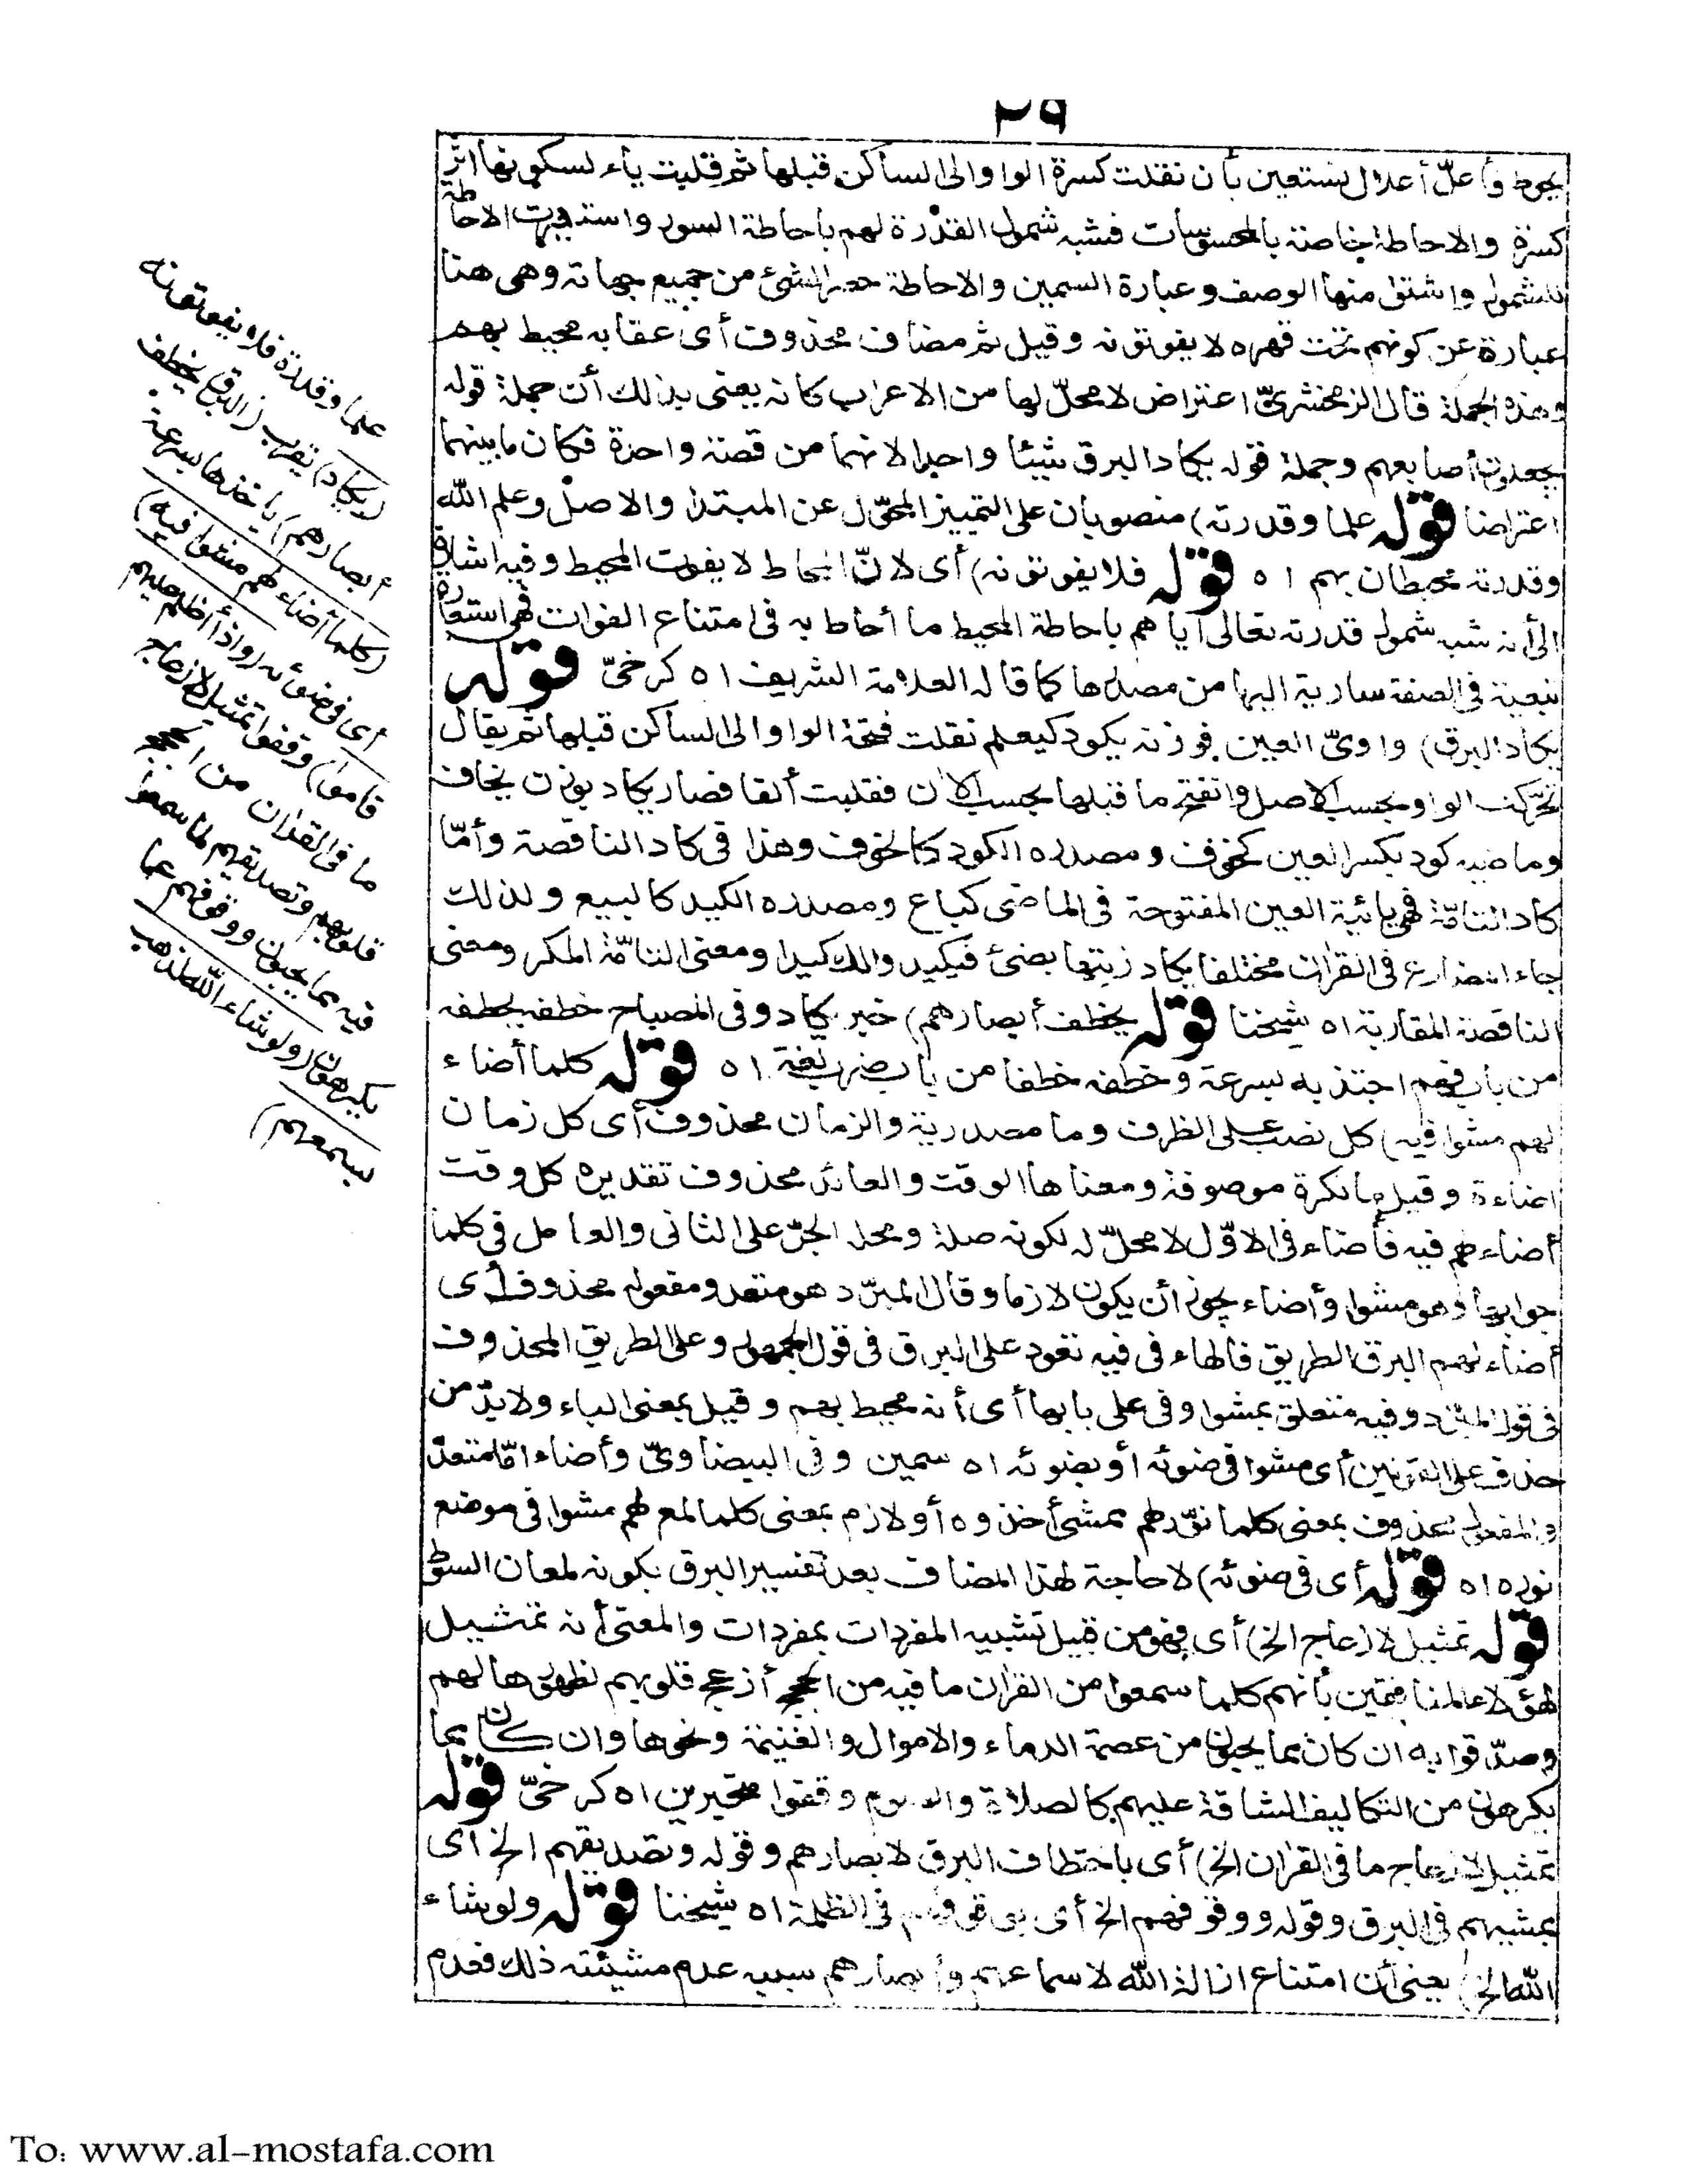 ٢٩
يحوط وأعلّ أعلال نستعين بأن نقلت كسرة الواو الى الساكن قبلها ثم قلبت ياء لسكونها اثر
كسرة والاحاطة خاصة بالمحسوسات فشبه شمول القدرة لهم باحاطة السور واستعيرت الاحاطة
للشمول واشتق منها الوصف وعبارة السمين والاحاطة حصر الشئ من جميع جهاته وهى هنا
عبارة عن كونهم تحت قهره لا يفوتونه وقيل ثم مضاف محذوف أى عقابه محيط بهم
وهذه الجملة قال الزمخشرىّ اعتراض لا محلّ لها من الاعراب كانه يعنى بذلك أن جملة قوله
يجعلون أصابعهم وجملة قوله يكاد البرق شيئا واحدا لانهما من قصة واحدة فكان ما بينهما
اعتراضا قوله علما وقدرته) منصوبان على التمييز المحوّل عن المبتدا والاصل وعلم الله
وقدرته محيطان بهم اه قوله فلا يفوتونه) أى لانّ المحاط لا يفوت المحيط وفيه اشارة
الى أنه شبه شمول قدرته تعالى اياهم باحاطة المحيط ما أحاط به فى امتناع الفوات فهى استعارة
تبعية فى الصفة سارية اليها من مصدرها كما قاله العلامة الشريف اه كرخىّ قوله
يكاد البرق) واوىّ العين فوزنه يكود كيعلم نقلت فتحة الواو الى الساكن قبلها ثم يقال
تحرّكت الواو بحسب الاصل وانفتح ما قبلها بحسب الآن فقلبت ألفا فصار يكاد بوزن يخاف
وماضيه كود بكسر العين كخوف ومصدره الكود كالخوف وهذا فى كاد الناقصة وأمّا
كاد التامّة فهى يائية العين المفتوحة فى الماضى كباع ومصدره الكيد كالبيع ولذلك
جاء المضارع فى القرآن مختلفا يكاد زيتها يضئ فيكيدوا لك كيدا ومعنى التامّة المكر ومعنى
الناقصة المقاربة اه شيخنا قوله يخطف أبصارهم) خبر يكاد وفى المصباح خطفه يخطفه
من باب فهم اجتذبه بسرعة وخطفه خطفا من باب ضرب لغة اه قوله كلما أضاء
لهم مشوا فيه) كل نصب على الظرف وما مصدرية والزمان محذوف أى كل زمان
اضاءة وقيل ما نكرة موصوفة ومعناها الوقت والعائد محذوف تقديره كل وقت
أضاء لهم فيه فأضاء فى الاوّل لا محلّ له لكونه صلة ومحله الجرّ على الثانى والعامل فى كلما
جوابها وهو مشوا وأضاء يجوز أن يكون لازما وقال المبرّد هو متعد ومفعوله محذوف أى
أضاء لهم البرق الطريق فالهاء فى فيه تعود على البرق فى قول الجمهور وعلى الطريق المحذوف
فى قول المبرّد وفيه متعلق بمشوا وفى على بابها أى أنه محيط بهم وقيل بمعنى الباء ولا بدّ من
حذف على القولين أى مشوا فى ضوئه أو بضوئه اه سمين وفى البيضاوىّ وأضاء امّا متعدّ
والمفعول محذوف بمعنى كلما نوّر لهم ممشى أخذوه أو لازم بمعنى كلما لمع لهم مشوا فى موضع
نوره اه قوله أى فى ضوئه) لا حاجة لهذا المضاف بعد تفسير البرق بكونه لمعان السوط
قوله تمثيل لازعاج الخ) أى فهو من قبيل تشبيه المفردات بمفردات والمعنى أنه تمثيل
لهؤلاء المنافقين بأنهم كلما سمعوا من القرآن ما فيه من الحجج أزعج قلوبهم لظهورها لهم
وصدّقوا به ان كان مما يحبون من عصمة الدماء والاموال والغنيمة ونحوها وان كان مما
يكرهون من التكاليف الشاقة عليهم كالصلاة والصوم وقفوا متحيرين اه كرخىّ قوله
تمثيل لازعاج ما فى القرآن الخ) أى باختطاف البرق لابصارهم وقوله وتصديقهم الخ أى
بمشيهم فى البرق وقوله ووقوفهم الخ أى بوقوفهم فى الظلمة اه شيخنا قوله ولو شاء
الله الخ) يعنى أن امتناع ازالة الله لاسماعهم وأبصارهم سببه عدم مشيئته ذلك فعدم
علما وقدرة فلا يفوتونه
(يكاد) يقرب (البرق يخطف
أبصارهم) يأخذها بسرعة
(كلما أضاء لهم مشوا فيه)
أى فى ضوئه (واذا أظلم عليهم
قاموا) وقفوا تمثيل لازعاج
ما فى القرآن من الحجج
قلوبهم وتصديقهم لما سمعوا
فيه مما يحبون ووقوفهم عما
يكرهون (ولو شاء الله لذهب
بسمعهم)
To: www.al-mostafa.com